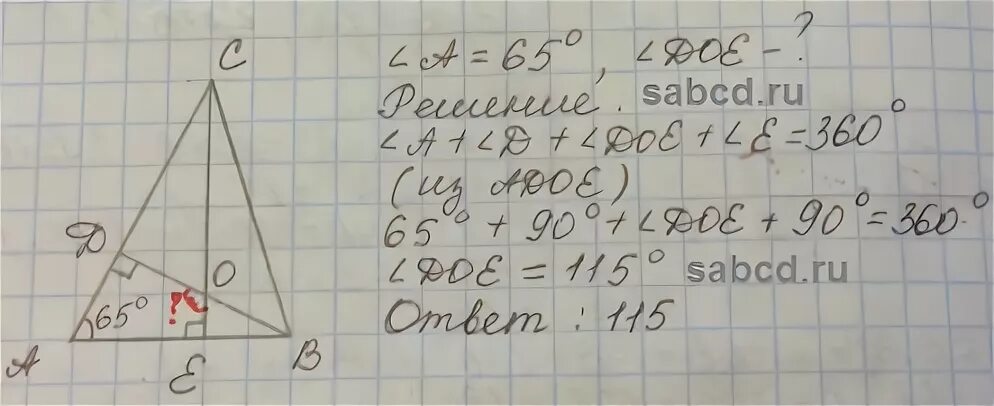 C
∠A = 65°, ∠DOE - ?
Решение. sabcd.ru
∠A + ∠D + ∠DOE + ∠E = 360°
(из ADOE)
65° + 90° + ∠DOE + 90° = 360°
∠DOE = 115° sabcd.ru
Ответ: 115
D
O
65°
?
A
E
B